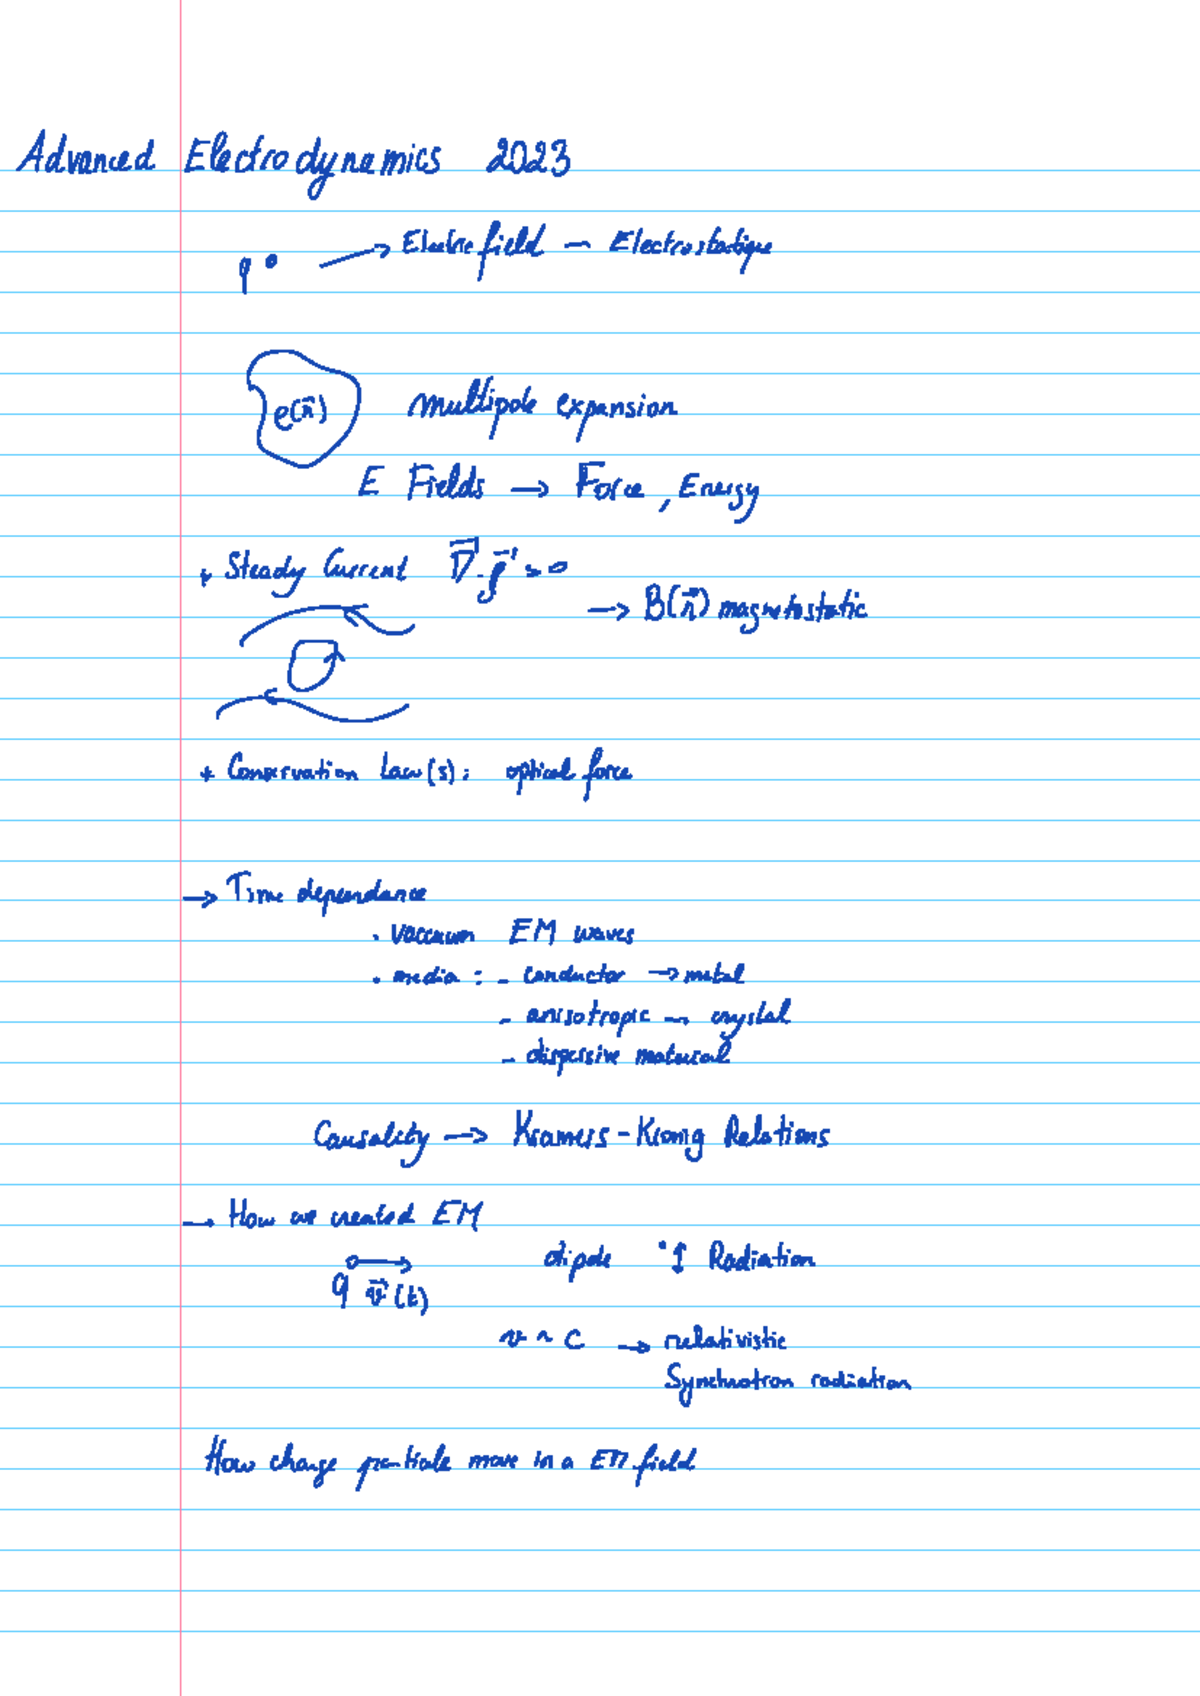 Advanced Electrodynamics 2023
q → Electric field – Electrostatique
ρ(r⃗) multipole expansion
E Fields → Force, Energy
+ Steady Current ∇⃗·j⃗ = 0
→ B(r⃗) magnetostatic
+ Conservation Law(s): optical force
→ Time dependance
. vaccuum EM waves
. media : - conductor → metal
- anisotropic — crystal
- dispersive material
Causality → Kramers-Kronig Relations
→ How we created EM
dipole ↕ Radiation
q v⃗(t)
v ~ c → relativistic
Synchrotron radiation
How charge particle move in a EM field